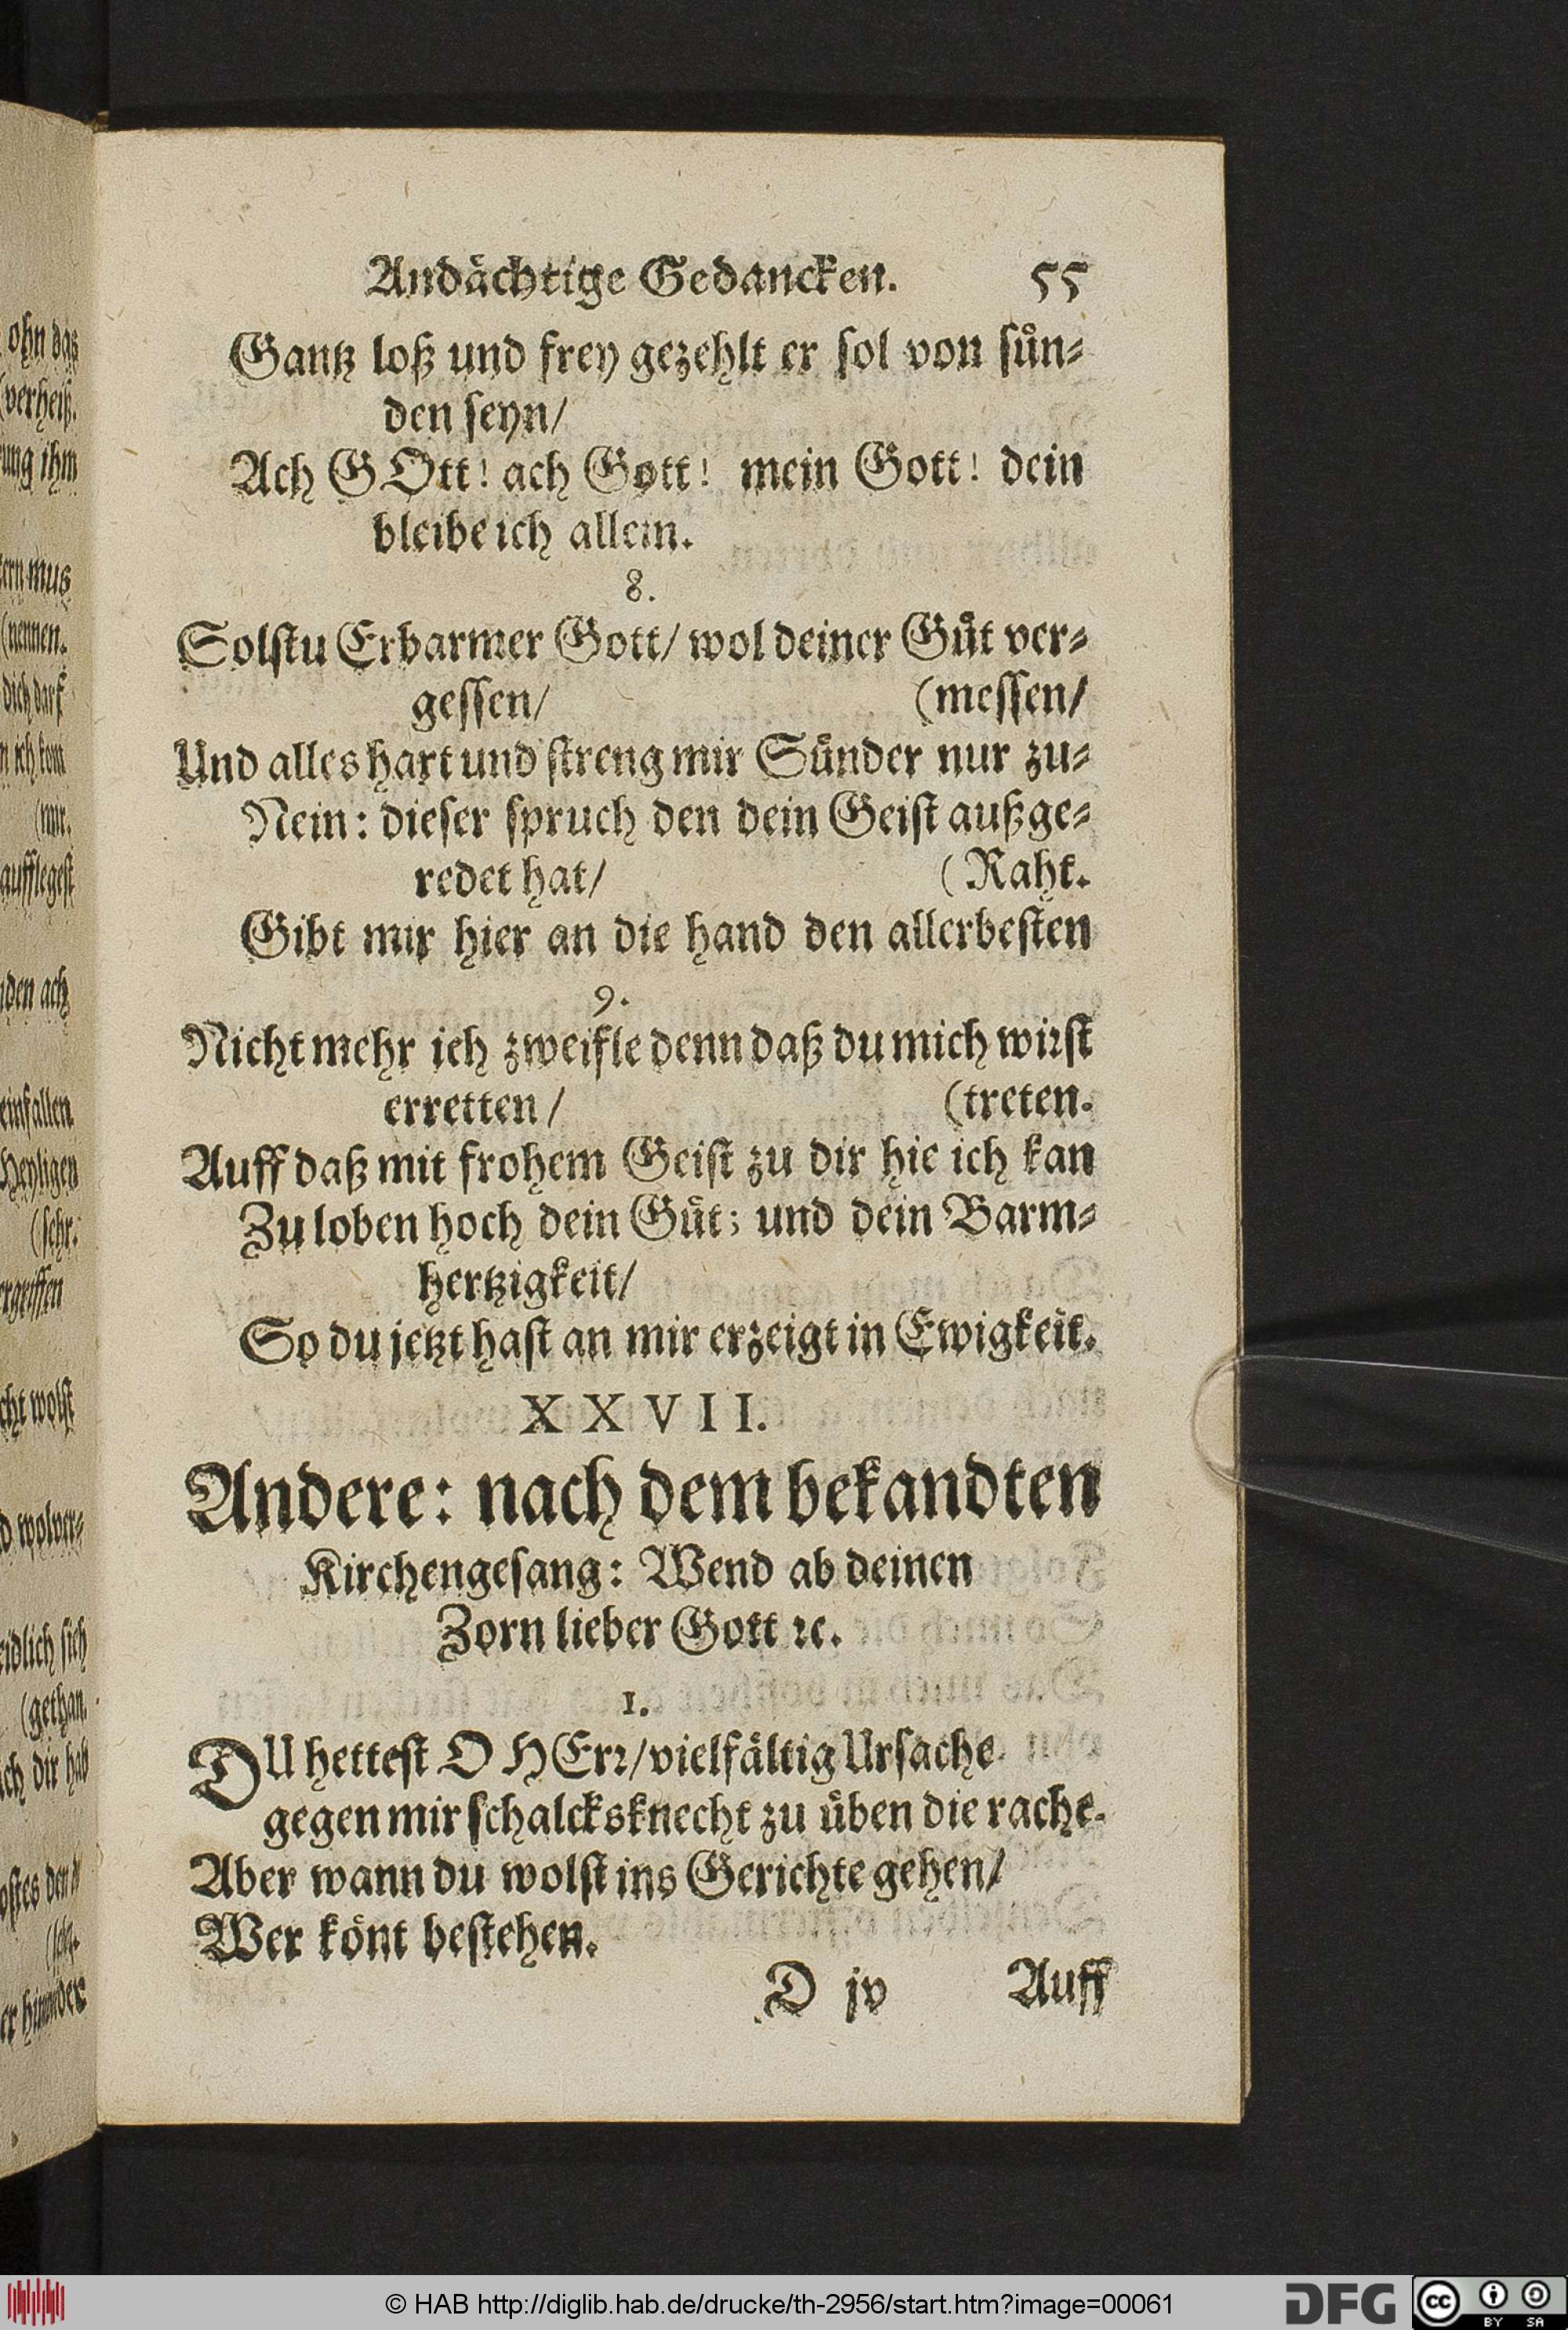 Andächtige Gedancken. 55
Gantz loß und frey gezehlt er sol von sün-
den seyn/
Ach GOtt! ach Gott! mein Gott! dein
bleibe ich allein.
8.
Solstu Erbarmer Gott/ wol deiner Güt ver-
gessen/ (messen/
Und alles hart und streng mir Sünder nur zu-
Nein: dieser spruch den dein Geist außge-
redet hat/ (Raht.
Gibt mir hier an die hand den allerbesten
9.
Nicht mehr ich zweifle denn daß du mich wirst
erretten/ (treten.
Auff daß mit frohem Geist zu dir hie ich kan
Zu loben hoch dein Güt; und dein Barm-
hertzigkeit/
So du jetzt hast an mir erzeigt in Ewigkeit.
XXVII.
Andere: nach dem bekandten
Kirchengesang: Wend ab deinen
Zorn lieber Gott ꝛc.
1.
DU hettest O HErr/ vielfältig Ursache
gegen mir schalcksknecht zu üben die rache.
Aber wann du wolst ins Gerichte gehen/
Wer könt bestehen.
D jv Auff
ohn das
(verheiß.
ung ihm
mus
(nennen.
dich darf
ich kom
(mir.
aufflegest
den ach
einfallen
Heyligen
(sehr.
ergriffen
cht wolst
wolver-
sich
(gethan.
ich dir hab
© HAB http://diglib.hab.de/drucke/th-2956/start.htm?image=00061
DFG
cc
BY SA